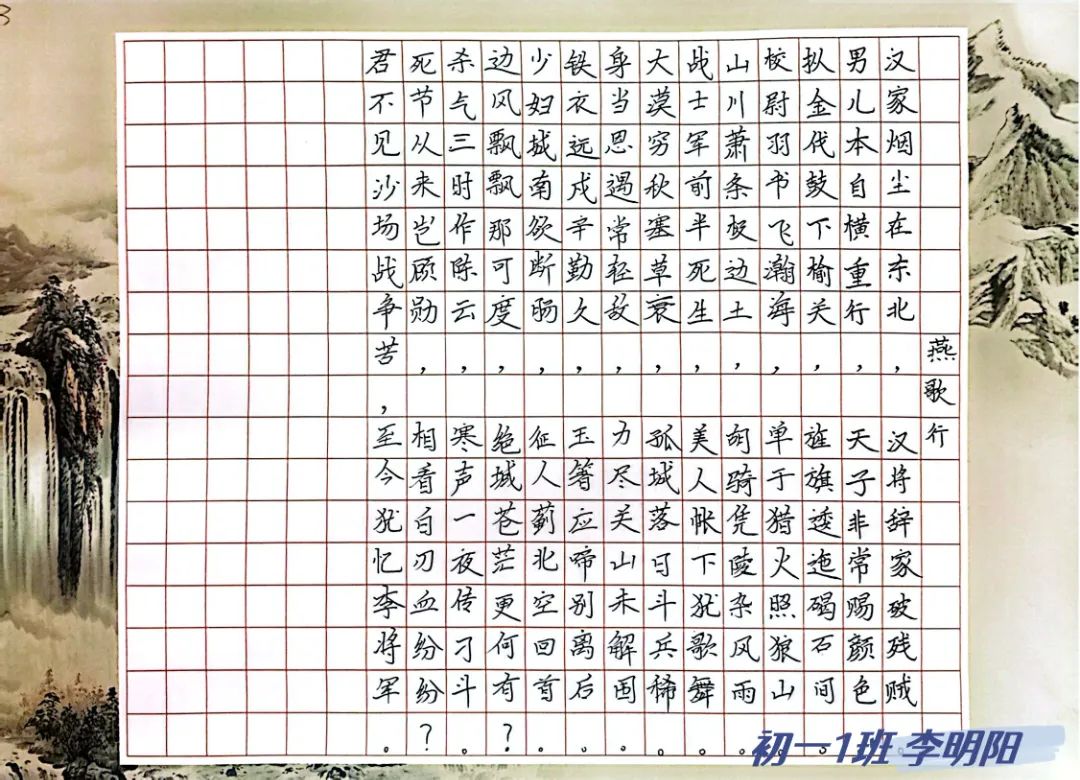 燕歌行
汉家烟尘在东北，汉将辞家破残贼。
男儿本自横重行，天子非常赐颜色。
𪭢金代鼓下榆关，旌旗逶迤碣石间。
校尉羽书飞瀚海，单于猎火照狼山。
山川萧条极边土，胡骑凭陵杂风雨。
战士军前半死生，美人帐下犹歌舞。
大漠穷秋塞草衰，孤城落日斗兵稀。
身当恩遇常轻敌，力尽关山未解围。
铁衣远戍辛勤久，玉箸应啼别离后。
少妇城南欲断肠，征人蓟北空回首。
边风飘飘那可度，绝城苍茫更何有？
杀气三时作阵云，寒声一夜传刁斗。
死节从来岂顾勋，相看白刃血纷纷？
君不见沙场战争苦，至今犹忆李将军。
初一1班 李明阳